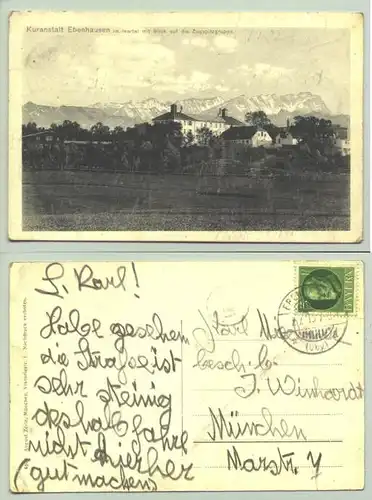 Kuranstalt Ebenhausen im Isartal mit Blick auf die Zugspitzgruppe.
L. Karl!
Habe gesehen
die Straße ist
sehr steinig
deshalb fahre
nicht hierher
gut machens
Karl
besch. b.
J. Winhardt
München
Marstr. 7
BAYERN